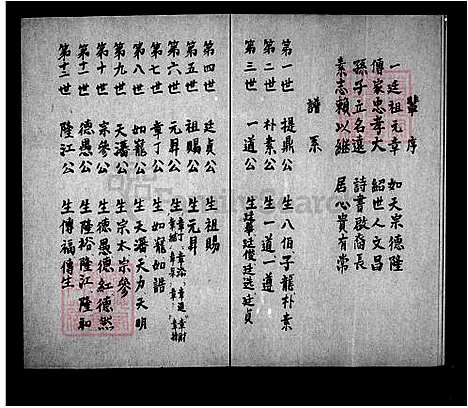 輩序
一廷祖元章 如天宗德隆
傳家忠孝大 紹世人文昌
孫子立名遠 詩書啟裔長
素志賴以繼 居心貴有常
譜系
第一世 提鼎公 生八伯子龍朴素
第二世 朴素公 生一道一遵
第三世 一道公 生廷華廷俊廷選廷貞
第四世 廷貞公 生祖賜
第五世 祖賜公 生元昇
第六世 元昇公 生
第七世 章丁公 生如龍如誥
第八世 如龍公 生天潘天力天明
第九世 天潘公 生宗太宗參
第十世 宗參公 生德愚德紅德然
第十一世 德愚公 生隆裕隆江隆和
第十二世 隆江公 生傳福傳生
FamilySearch